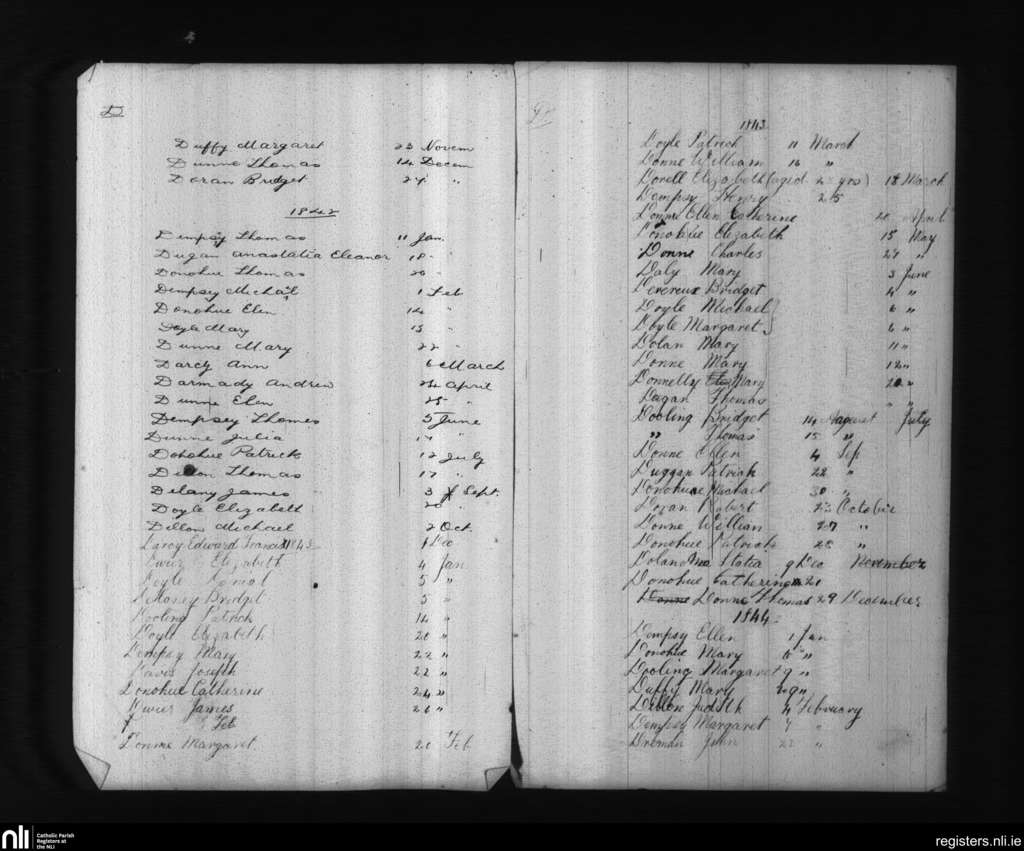 D
Duffy Margaret 23 Novem
Dunne Thomas 14 Decem
Doran Bridget 24 "
1842
Dempsey Thomas 11 Jan.
Dugan Anastatia Eleanor 18 "
Donohue Thomas 20 "
Dempsey Michal 1 Feb
Donohue Elen 14 "
Doyle Mary 15 "
Dunne Mary 22 "
Darcy Ann 6 March
Darmady Andrew 24 April
Dunne Elen 25 "
Dempsey Thomas 5 June
Dunne Julia 17 "
Donohue Patrick 12 July
Dillon Thomas 17 "
Delany James 3 Sept.
Doyle Elizabeth 20 "
Dillon Michael 2 Oct.
Darcy Edward Francis 1843 Dec
Dwier Elizabeth 4 Jan
Doyle 5 "
Delaney Bridget 5 "
Dooling Patrick 14 "
Doyle Elizabeth 20 "
Dempsy Mary 22 "
Davis Joseph 22 "
Donohue Catherine 24 "
Dwier James 26 "
Feb
Donne Margaret 20 Feb
1843
Doyle Patrick 11 March
Donne William 16 "
Dorell Elizabeth (aged 2 yrs) 18 March
Dempsy Henry 25
Donne Ellen Catherine April
Donohue Elizabeth 15 May
Donne Charles 27 "
Daly Mary 3 June
Devereux Bridget 4 "
Doyle Michael 6 "
Doyle Margaret 6 "
Dolan Mary 11 "
Donne Mary 12 "
Donnelly Mary 20 "
Dugan Thomas " "
Dooling Bridget 14 August July
" Thomas 15 "
Donne Ellen 4 Sep
Duggan Patrick 22 "
Donohue Michael 30 "
Doran Robert 23 October
Donne William 27 "
Donohue Patrick 28 "
Doland Statia 9 Dec November
Donohue Catherine 20
Donne Donne Thomas 29 December
1844
Dempsy Ellen 1 Jan
Donohue Mary 5 "
Dooling Margaret 9 "
Duffy Mary 29 "
Dillon Judith 4 February
Dempsy Margaret 7 "
Drenan John 22 "
nli
Catholic Parish
Registers at
the NLI
registers.nli.ie